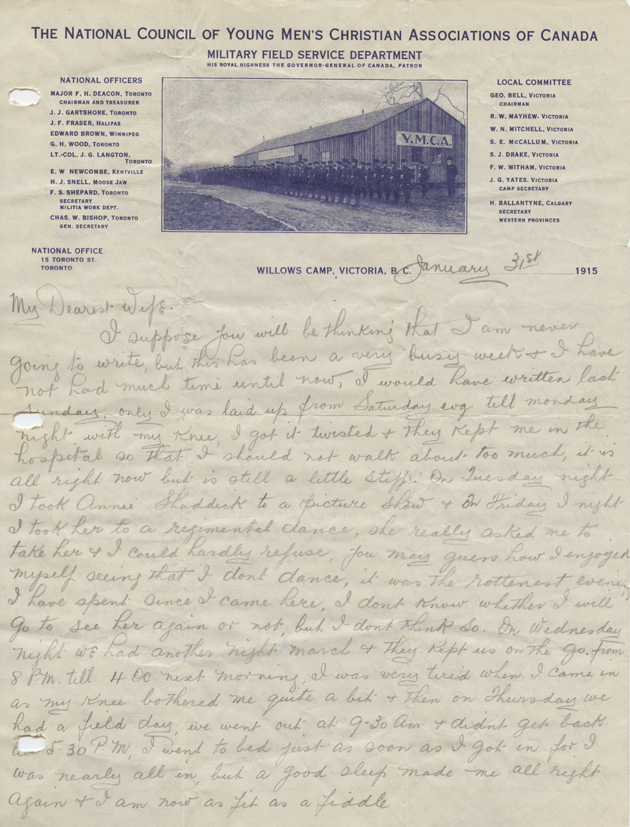 THE NATIONAL COUNCIL OF YOUNG MEN'S CHRISTIAN ASSOCIATIONS OF CANADA
MILITARY FIELD SERVICE DEPARTMENT
HIS ROYAL HIGHNESS THE GOVERNOR-GENERAL OF CANADA, PATRON
NATIONAL OFFICERS
MAJOR F. H. DEACON, TORONTO
CHAIRMAN AND TREASURER
J. J. GARTSHORE, TORONTO
J. F. FRASER, HALIFAX
EDWARD BROWN, WINNIPEG
G. H. WOOD, TORONTO
LT.-COL. J. G. LANGTON,
TORONTO
E. W. NEWCOMBE, KENTVILLE
H. J. SNELL, MOOSE JAW
F. S. SHEPARD, TORONTO
SECRETARY
MILITIA WORK DEPT.
CHAS. W. BISHOP, TORONTO
GEN. SECRETARY
NATIONAL OFFICE
15 TORONTO ST.
TORONTO
Y.M.C.A.
LOCAL COMMITTEE
GEO. BELL, VICTORIA
CHAIRMAN
R. W. MAYHEW, VICTORIA
W. N. MITCHELL, VICTORIA
S. E. McCALLUM, VICTORIA
S. J. DRAKE, VICTORIA
F. W. WITHAM, VICTORIA
J. G. YATES, VICTORIA
CAMP SECRETARY
H. BALLANTYNE, CALGARY
SECRETARY
WESTERN PROVINCES
WILLOWS CAMP, VICTORIA, B.C. January 31st 1915
My Dearest Wife.
I suppose you will be thinking that I am never
going to write, but this has been a very busy week & I have
not had much time until now, I would have written last
Sunday, only I was laid up from Saturday evg till monday
night with my knee, I got it twisted & they kept me in the
hospital so that I should not walk about too much, it is
all right now but is still a little stiff. On Tuesday night
I took Annie Shaddick to a picture show & On Friday night
I took her to a regimental dance, she really asked me to
take her & I could hardly refuse, you may guess how I engoyed
myself seeing that I dont dance, it was the rottenest evening
I have spent since I came here, I dont know whether I will
go to see her again or not, but I dont think so. On Wednesday
night we had another night march & they kept us on the go from
8 P.M. till 4 OC next morning, I was very tired when I came in
as my knee bothered me quite a bit & then on Thursday we
had a field day, we went out at 9-30 Am & didnt get back
5-30 P.M, I went to bed just as soon as I got in for I
was nearly all in, but a good sleep made me all right
again & I am now as fit as a fiddle